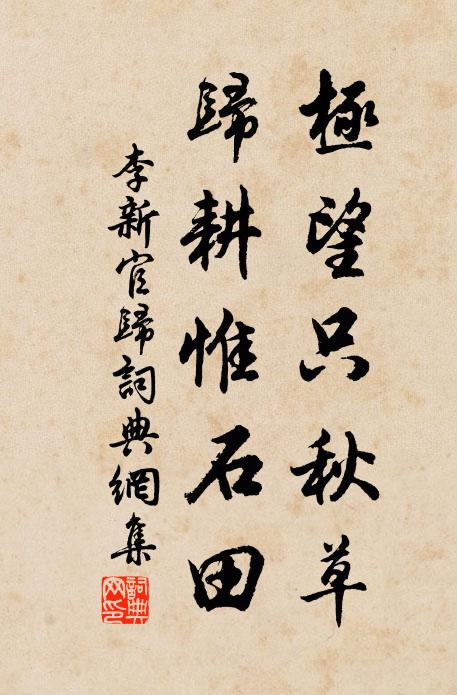 極望只秋草
歸耕惟石田
李新官歸詞典網集
詞典網印